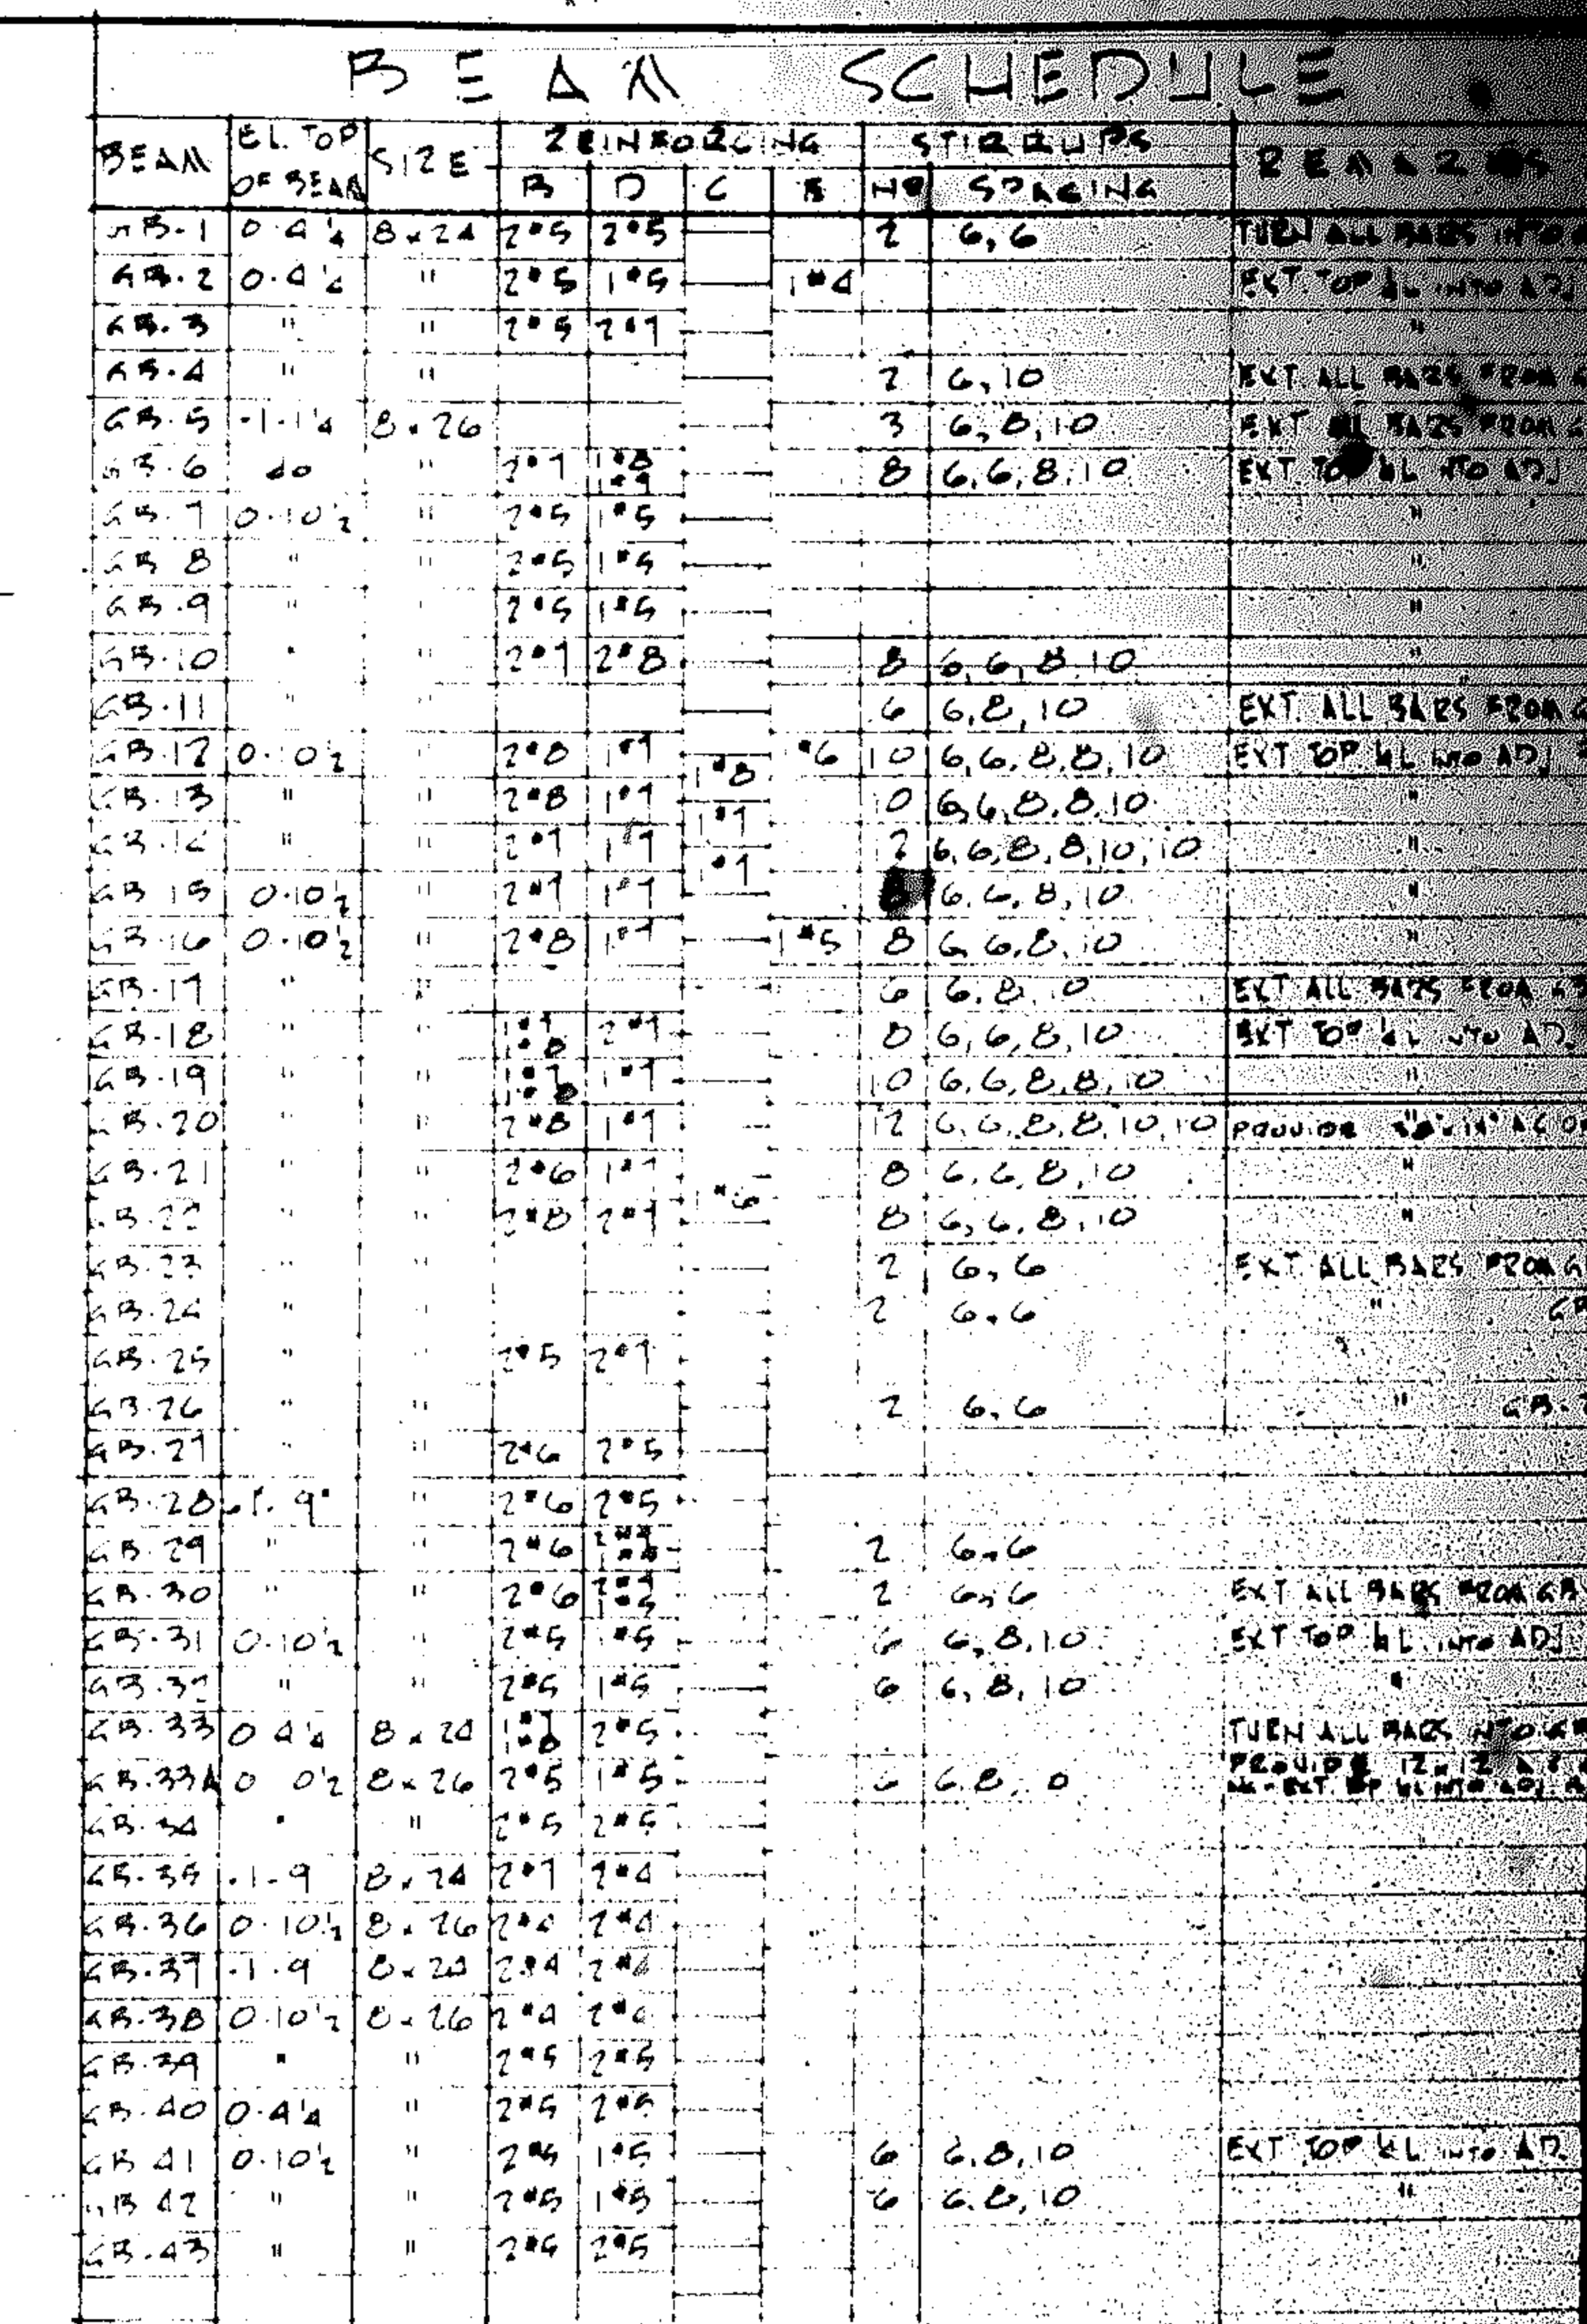 BEAM SCHEDULE
BEAM EL. TOP OF BEAM SIZE REINFORCING STIRRUPS REMARKS
B D C E NO SPACING
GB-1 0-4¼ 8x24 2#5 2#5 2 6,6 TURN ALL BARS INTO
GB-2 0-4¼ " 2#5 1#5 1#4 EXT. TOP ¼L INTO ADJ
GB-3 " " 2#5 2#7 "
GB-4 " " 2 6,10 EXT. ALL BARS FROM
GB-5 -1-1¼ 8x26 3 6,8,10 EXT ALL BARS FROM
GB-6 do " 2#7 8 6,6,8,10 EXT. TOP ¼L INTO ADJ
GB-7 0-10½ " 2#5 1#5 "
GB 8 " " 2#5 1#5 "
GB-9 " " 2#5 1#5 "
GB-10 " " 2#7 2#8 8 6,6,8,10 "
GB-11 " " 6 6,8,10 EXT. ALL BARS FROM G
GB-12 0-10½ " 2#8 1#7 1#8 #6 10 6,6,8,8,10 EXT TOP ¼L INTO ADJ
GB-13 " " 2#8 1#7 1#7 10 6,6,8,8,10 "
GB-14 " " 2#7 1#7 1#7 2 6,6,8,8,10,10 "
GB 15 0-10½ " 2#7 1#7 6,6,8,10 "
GB-16 0-10½ " 2#8 1#7 1#5 8 6,6,8,10 "
GB-17 " " 6 6,8,10 EXT ALL BARS FROM GB
GB-18 " " 2#7 8 6,6,8,10 EXT TOP ¼L INTO AD
GB-19 " " 1#7 10 6,6,8,8,10 "
GB-20 " " 2#8 1#7 12 6,6,8,8,10,10 PROVIDE
GB-21 " " 2#6 1#7 8 6,6,8,10 "
1#6
GB-22 " " 2#8 2#7 8 6,6,8,10 "
GB-23 " " 2 6,6 EXT. ALL BARS FROM G
GB-24 " " 2 6,6 " GB
GB-25 " " 2#5 2#7
GB-26 " " 2 6,6 " GB-
GB-27 " " 2#6 2#5
GB-28 " 2#6 2#5
GB-29 " " 2#6 2 6,6
GB-30 " " 2#6 2 6,6 EXT ALL BARS FROM GB
GB-31 0-10½ " 2#5 1#5 6 6,8,10 EXT TOP ¼L INTO ADJ
GB-32 " " 2#5 1#5 6 6,8,10 "
GB-33 0-4¼ 8x24 2#5 TURN ALL BARS INTO GB
GB-33A 8x26 2#5 1#5 6 6,8,10 PROVIDE 12x12
EXT. TOP ¼L INTO ADJ.
GB-34 " " 2#5 2#5
GB-35 -1-9 8x24 2#7 2#4
GB-36 0-10½ 8x26 2#4 2#4
GB-37 -1-9 8x24 2#4 2#4
GB-38 0-10½ 8x26 2#4 2#4
GB-39 " " 2#5 2#5
GB-40 0-4¼ " 2#5 2#5
GB 41 0-10½ " 2#5 1#5 6 6,8,10 EXT TOP ¼L INTO AD
GB 42 " " 2#5 1#5 6 6,8,10 "
GB-43 " " 2#5 2#5